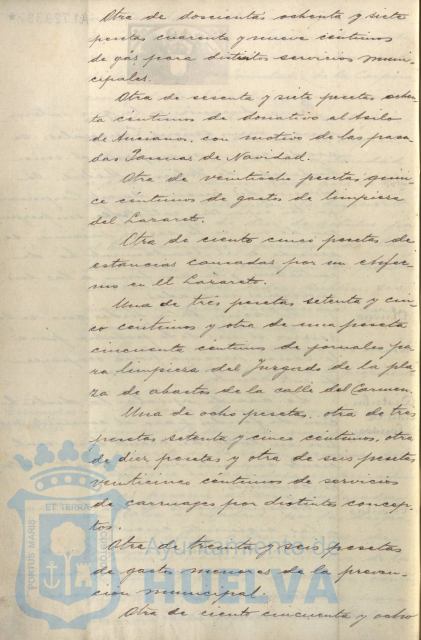 Otra de doscientas ochenta y siete
pesetas cuarenta y nueve céntimos
de gas para distintos servicios muni-
cipales.
Otra de sesenta y siete pesetas ochen-
ta céntimos de donativo al Asilo
de Ancianos, con motivo de las pasa-
das Pascuas de Navidad.
Otra de veintiocho pesetas quin-
ce céntimos de gastos de limpieza
del Lazareto.
Otra de ciento cinco pesetas de
estancias causadas por un enfer-
mo en el Lazareto.
Una de tres pesetas setenta y cin-
co céntimos y otra de una peseta
cincuenta céntimos de jornales pa-
ra limpieza del Juzgado de la pla-
za de abastos de la calle del Carmen.
Una de ocho pesetas, otra de tres
pesetas setenta y cinco céntimos, otra
de diez pesetas y otra de seis pesetas
veinticinco céntimos de servicios
de carruages por distintos concep-
tos.
Otra de treinta y seis pesetas
de gastos menores de la preven-
ción municipal.
Otra de ciento cincuenta y ocho
PORTUS MARIS ET TERRAE
Ayuntamiento de
HUELVA